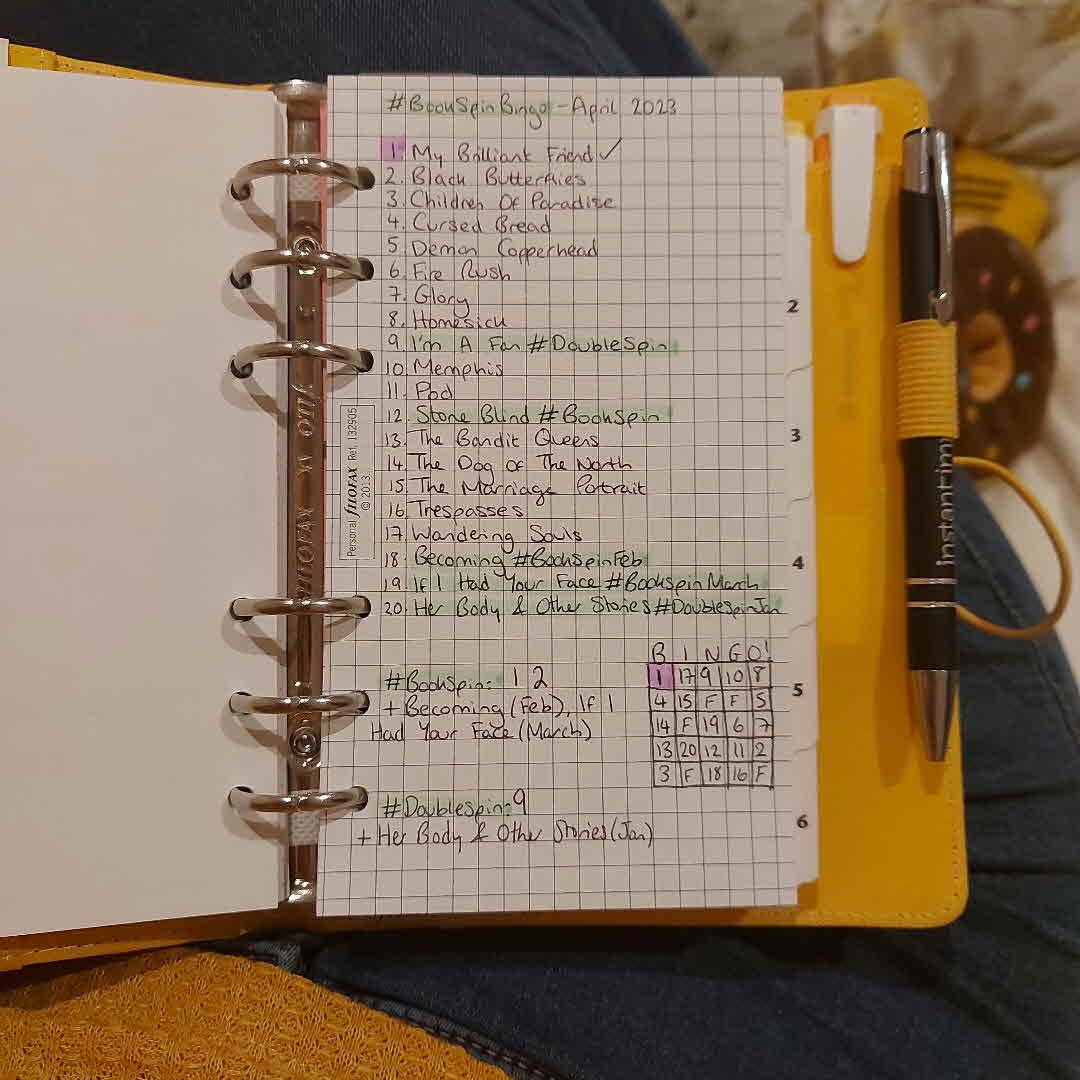 #BookSpinBingo - April 2023
1. My Brilliant Friend ✓
2. Black Butterflies
3. Children Of Paradise
4. Cursed Bread
5. Demon Copperhead
6. Fire Rush
7. Glory
8. Homesick
9. I'm A Fan #DoubleSpin
10. Memphis
11. Pod
12. Stone Blind #BookSpin
13. The Bandit Queens
14. The Dog Of The North
15. The Marriage Portrait
16. Trespasses
17. Wandering Souls
18. Becoming #BookSpinFeb
19. If I Had Your Face #BookspinMarch
20. Her Body & Other Stories #DoubleSpinJan
#BookSpin: 12
+ Becoming (Feb), If I
Had Your Face (March)
#DoubleSpin: 9
+ Her Body & Other Stories (Jan)
B I N G O!
1 17 9 10 8
4 15 F F 5
14 F 19 6 7
13 20 12 11 2
3 F 18 16 F
Personal FILOFAX Ref. 132905
© 2013
2
3
4
5
6
FILOFAX
instant